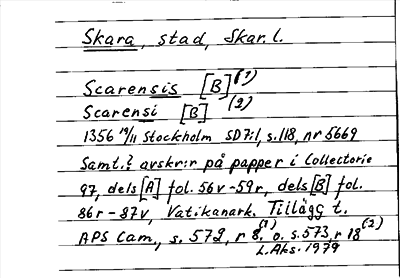 Skara, stad, Skar. l.
Scarensis [B] (1)
Scarensi [B] (2)
1356 19/11 Stockholm SD 7:1, s. 118, nr 5669
Samt.? avskr:r på papper i Collectorie
97, dels [A] fol. 56v-59r, dels [B] fol.
86r-87v, Vatikanark. Tillägg t.
APS Cam., s. 572, r 8,(1) o. s. 573, r 18 (2)
L. Aks. 1979